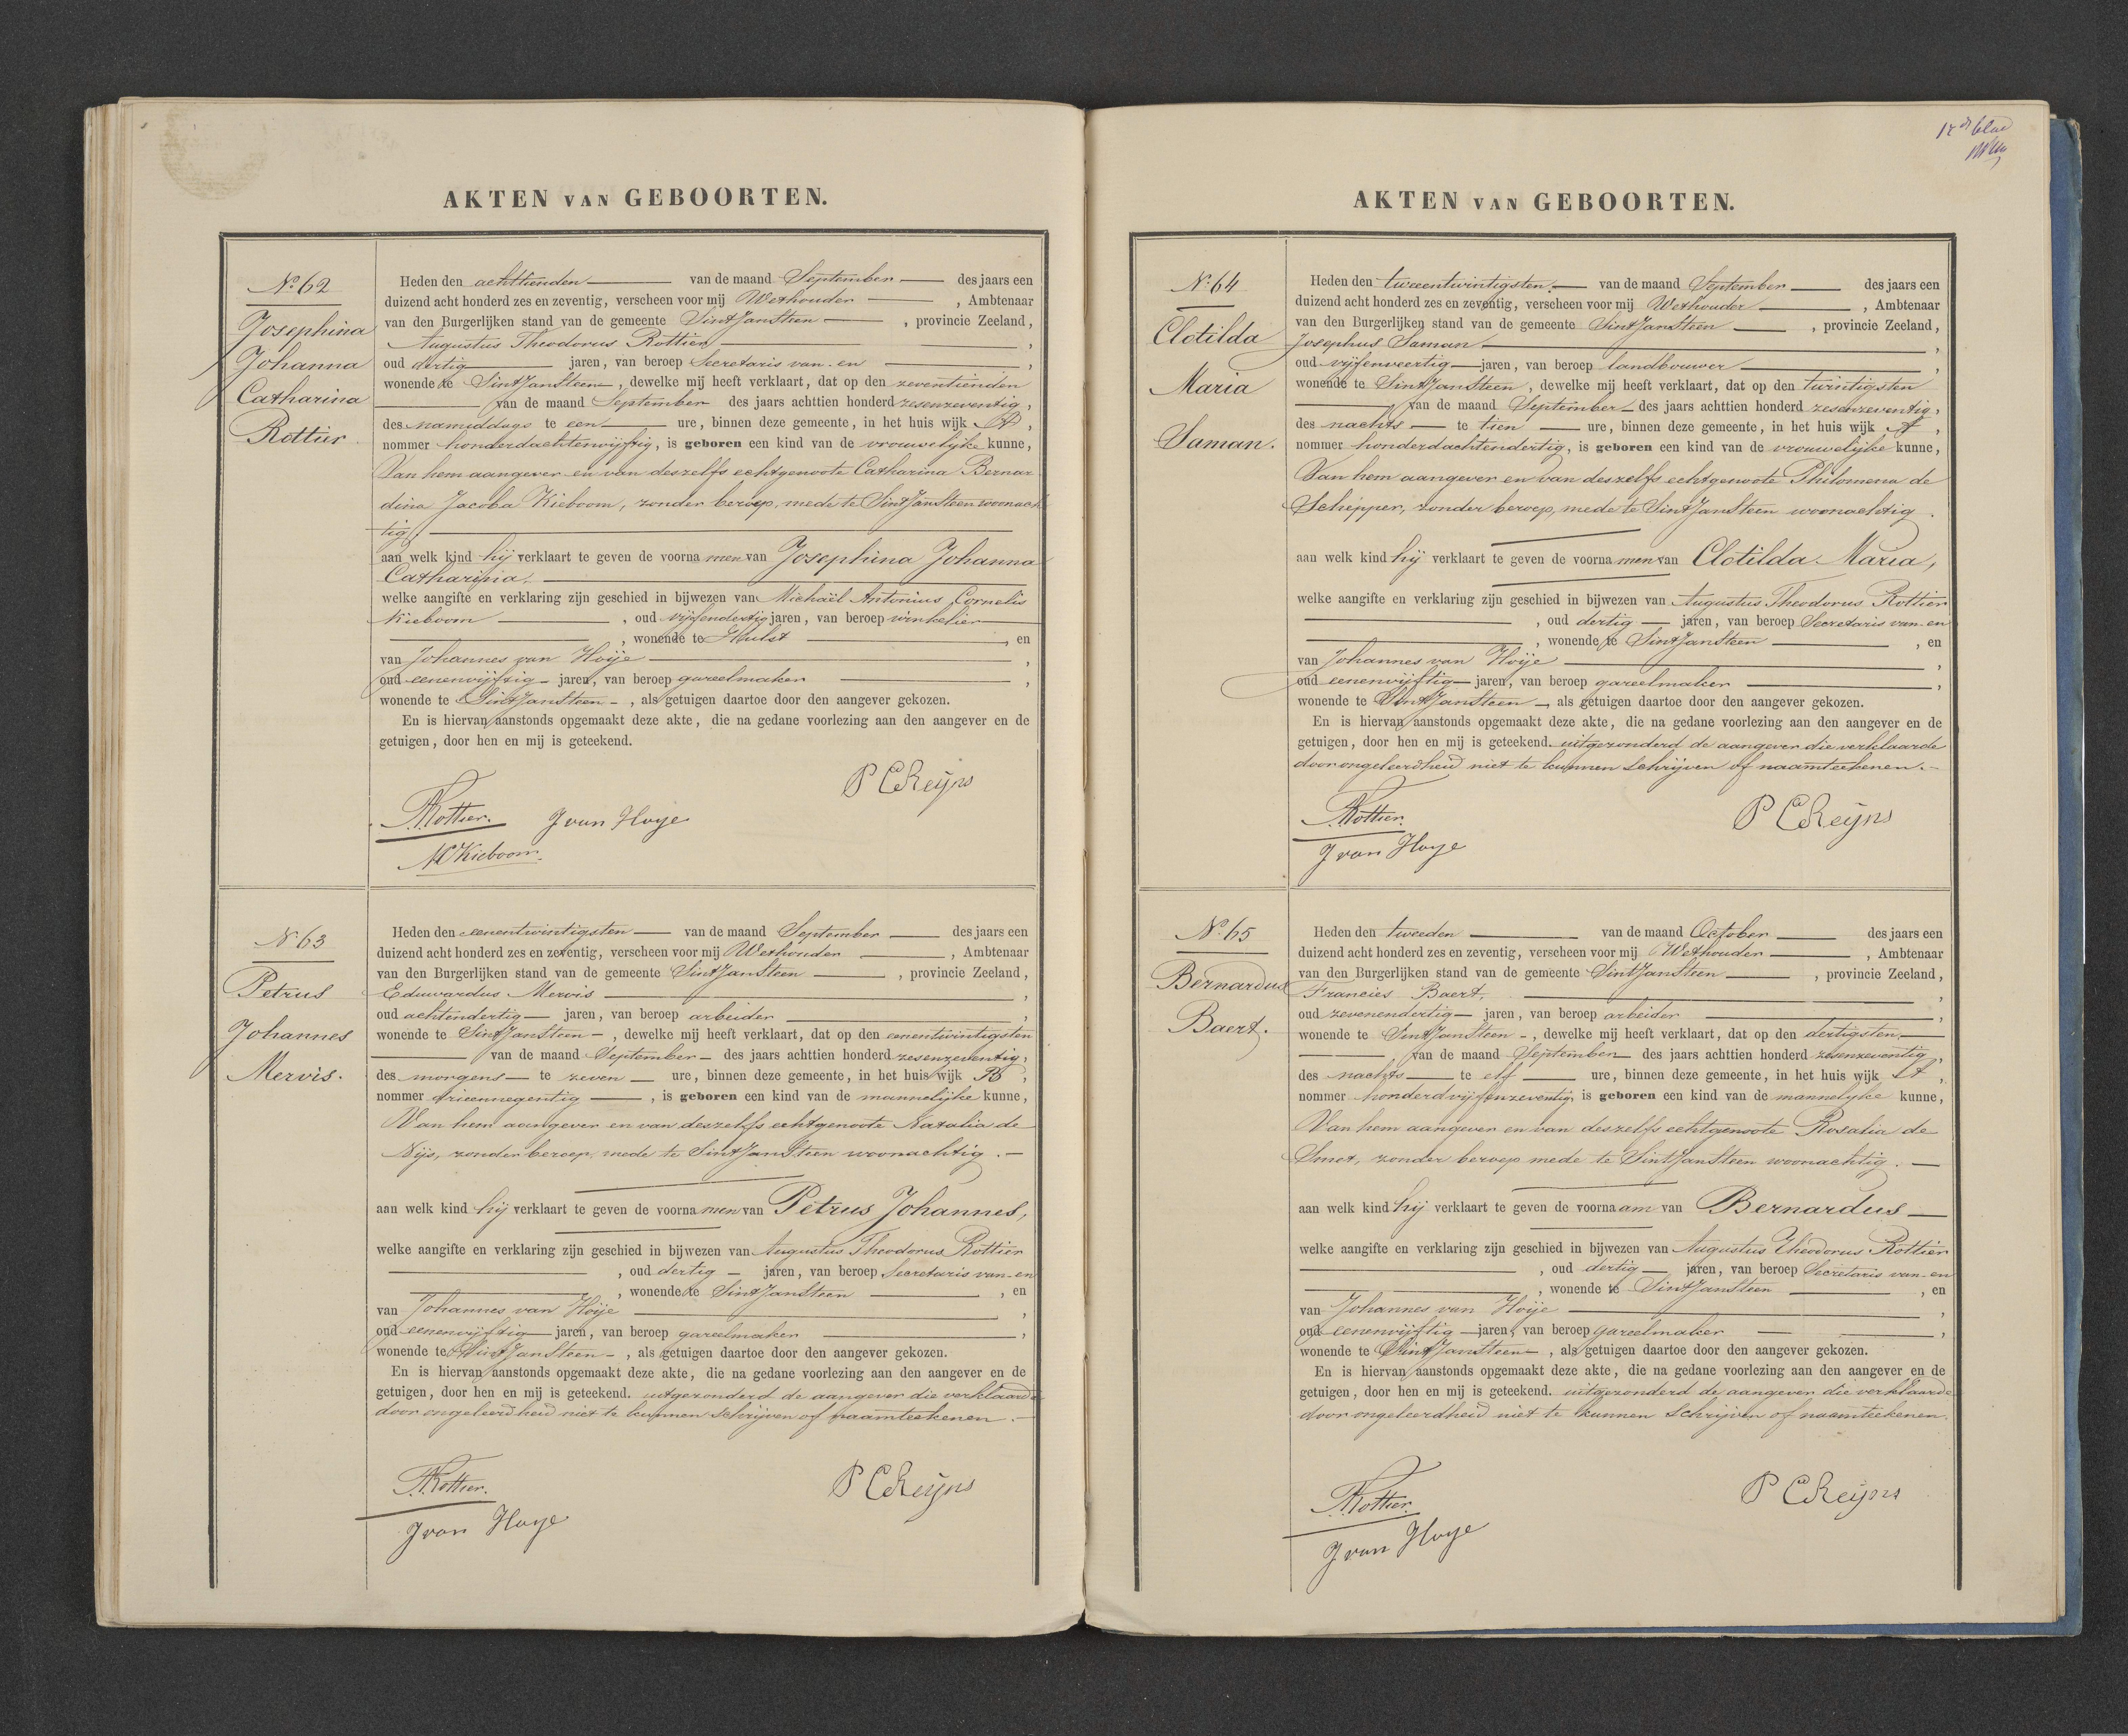 AKTEN VAN GEBOORTEN.
No. 62
Josephina
Johanna
Catharina
Rottier
Heden den achttienden van de maand September des jaars een
duizend acht honderd zes en zeventig, verscheen voor mij Wethouder , Ambtenaar
van den Burgerlijken stand van de gemeente Sint Jan Steen , provincie Zeeland,
Augustus Theodorus Rottier ,
oud dertig jaren, van beroep Secretaris van en ,
wonende te Sint Jan Steen , dewelke mij heeft verklaart, dat op den zeventienden
van de maand September des jaars achttien honderd zesenzeventig,
des namiddags te een ure, binnen deze gemeente, in het huis wijk A ,
nommer honderdachtenvijftig, is geboren een kind van de vrouwelijke kunne,
Van hem aangever en van deszelfs echtgenoote Catharina Bernar
dina Jacoba Kieboom, zonder beroep, mede te Sint Jan Steen woonach
tig.
aan welk kind hij verklaart te geven de voornamen van Josephina Johanna
Catharina.
welke aangifte en verklaring zijn geschied in bijwezen van Michaël Antonius Cornelis
Kieboom , oud vijfendertig jaren, van beroep winkelier
, wonende te Hulst , en
van Johannes van Hoije ,
oud eenenvijftig jaren, van beroep gareelmaker ,
wonende te Sint Jan Steen , als getuigen daartoe door den aangever gekozen.
En is hiervan aanstonds opgemaakt deze akte, die na gedane voorlezing aan den aangever en de
getuigen, door hen en mij is geteekend.
P C Reijns
A.T. Rottier. J van Hoye
M Kieboom.
No. 63
Petrus
Johannes
Mervis.
Heden den eenentwintigsten van de maand September des jaars een
duizend acht honderd zes en zeventig, verscheen voor mij Wethouder , Ambtenaar
van den Burgerlijken stand van de gemeente Sint Jan Steen , provincie Zeeland,
Eduwardus Mervis ,
oud achtendertig jaren, van beroep arbeider ,
wonende te Sint Jan Steen , dewelke mij heeft verklaart, dat op den eenentwintigsten
van de maand September des jaars achttien honderd zesenzeventig,
des morgens te zeven ure, binnen deze gemeente, in het huis wijk B ,
nommer drieennegentig , is geboren een kind van de mannelijke kunne,
Van hem aangever en van deszelfs echtgenoote Natalia de
Nijs, zonder beroep, mede te Sint Jan Steen woonachtig.
aan welk kind hij verklaart te geven de voornamen van Petrus Johannes,
welke aangifte en verklaring zijn geschied in bijwezen van Augustus Theodorus Rottier
, oud dertig jaren, van beroep Secretaris van en
, wonende te Sint Jan Steen , en
van Johannes van Hoije ,
oud eenenvijftig jaren, van beroep gareelmaker ,
wonende te Sint Jan Steen , als getuigen daartoe door den aangever gekozen.
En is hiervan aanstonds opgemaakt deze akte, die na gedane voorlezing aan den aangever en de
getuigen, door hen en mij is geteekend. uitgezonderd de aangever die verklaarde
door ongeleerdheid niet te kunnen schrijven of naamteekenen.
A.T. Rottier. P C Reijns
J van Hoye
12de blad
AKTEN VAN GEBOORTEN.
No. 64
Clotilda
Maria
Saman.
Heden den tweentwintigsten van de maand September des jaars een
duizend acht honderd zes en zeventig, verscheen voor mij Wethouder , Ambtenaar
van den Burgerlijken stand van de gemeente Sint Jan Steen , provincie Zeeland,
Josephus Saman ,
oud vijfenveertig jaren, van beroep landbouwer ,
wonende te Sint Jan Steen , dewelke mij heeft verklaart, dat op den twintigsten
van de maand September des jaars achttien honderd zesenzeventig,
des nachts te tien ure, binnen deze gemeente, in het huis wijk A ,
nommer honderdachtendertig, is geboren een kind van de vrouwelijke kunne,
Van hem aangever en van deszelfs echtgenoote Philomena de
Schepper, zonder beroep, mede te Sint Jan Steen woonachtig.
aan welk kind hij verklaart te geven de voornamen van Clotilda Maria,
welke aangifte en verklaring zijn geschied in bijwezen van Augustus Theodorus Rottier
, oud dertig jaren, van beroep Secretaris van en
, wonende te Sint Jan Steen , en
van Johannes van Hoije ,
oud eenenvijftig jaren, van beroep gareelmaker ,
wonende te Sint Jan Steen , als getuigen daartoe door den aangever gekozen.
En is hiervan aanstonds opgemaakt deze akte, die na gedane voorlezing aan den aangever en de
getuigen, door hen en mij is geteekend. uitgezonderd de aangever die verklaarde
door ongeleerdheid niet te kunnen schrijven of naamteekenen.
A.T. Rottier. P C Reijns
J van Hoye
No. 65
Bernardus
Baert.
Heden den tweeden van de maand October des jaars een
duizend acht honderd zes en zeventig, verscheen voor mij Wethouder , Ambtenaar
van den Burgerlijken stand van de gemeente Sint Jan Steen , provincie Zeeland,
Francies Baert, ,
oud zevenendertig jaren, van beroep arbeider ,
wonende te Sint Jan Steen , dewelke mij heeft verklaart, dat op den dertigsten
van de maand September des jaars achttien honderd zesenzeventig,
des nachts te elf ure, binnen deze gemeente, in het huis wijk A ,
nommer honderdvijfenzeventig, is geboren een kind van de mannelijke kunne,
Van hem aangever en van deszelfs echtgenoote Rosalia de
Smet, zonder beroep mede te Sint Jan Steen woonachtig.
aan welk kind hij verklaart te geven de voornaam van Bernardus
welke aangifte en verklaring zijn geschied in bijwezen van Augustus Theodorus Rottier
, oud dertig jaren, van beroep Secretaris van en
, wonende te Sint Jan Steen , en
van Johannes van Hoije ,
oud eenenvijftig jaren, van beroep gareelmaker ,
wonende te Sint Jan Steen , als getuigen daartoe door den aangever gekozen.
En is hiervan aanstonds opgemaakt deze akte, die na gedane voorlezing aan den aangever en de
getuigen, door hen en mij is geteekend. uitgezonderd de aangever die verklaarde
door ongeleerdheid niet te kunnen schrijven of naamteekenen.
A.T. Rottier. P C Reijns
J van Hoye